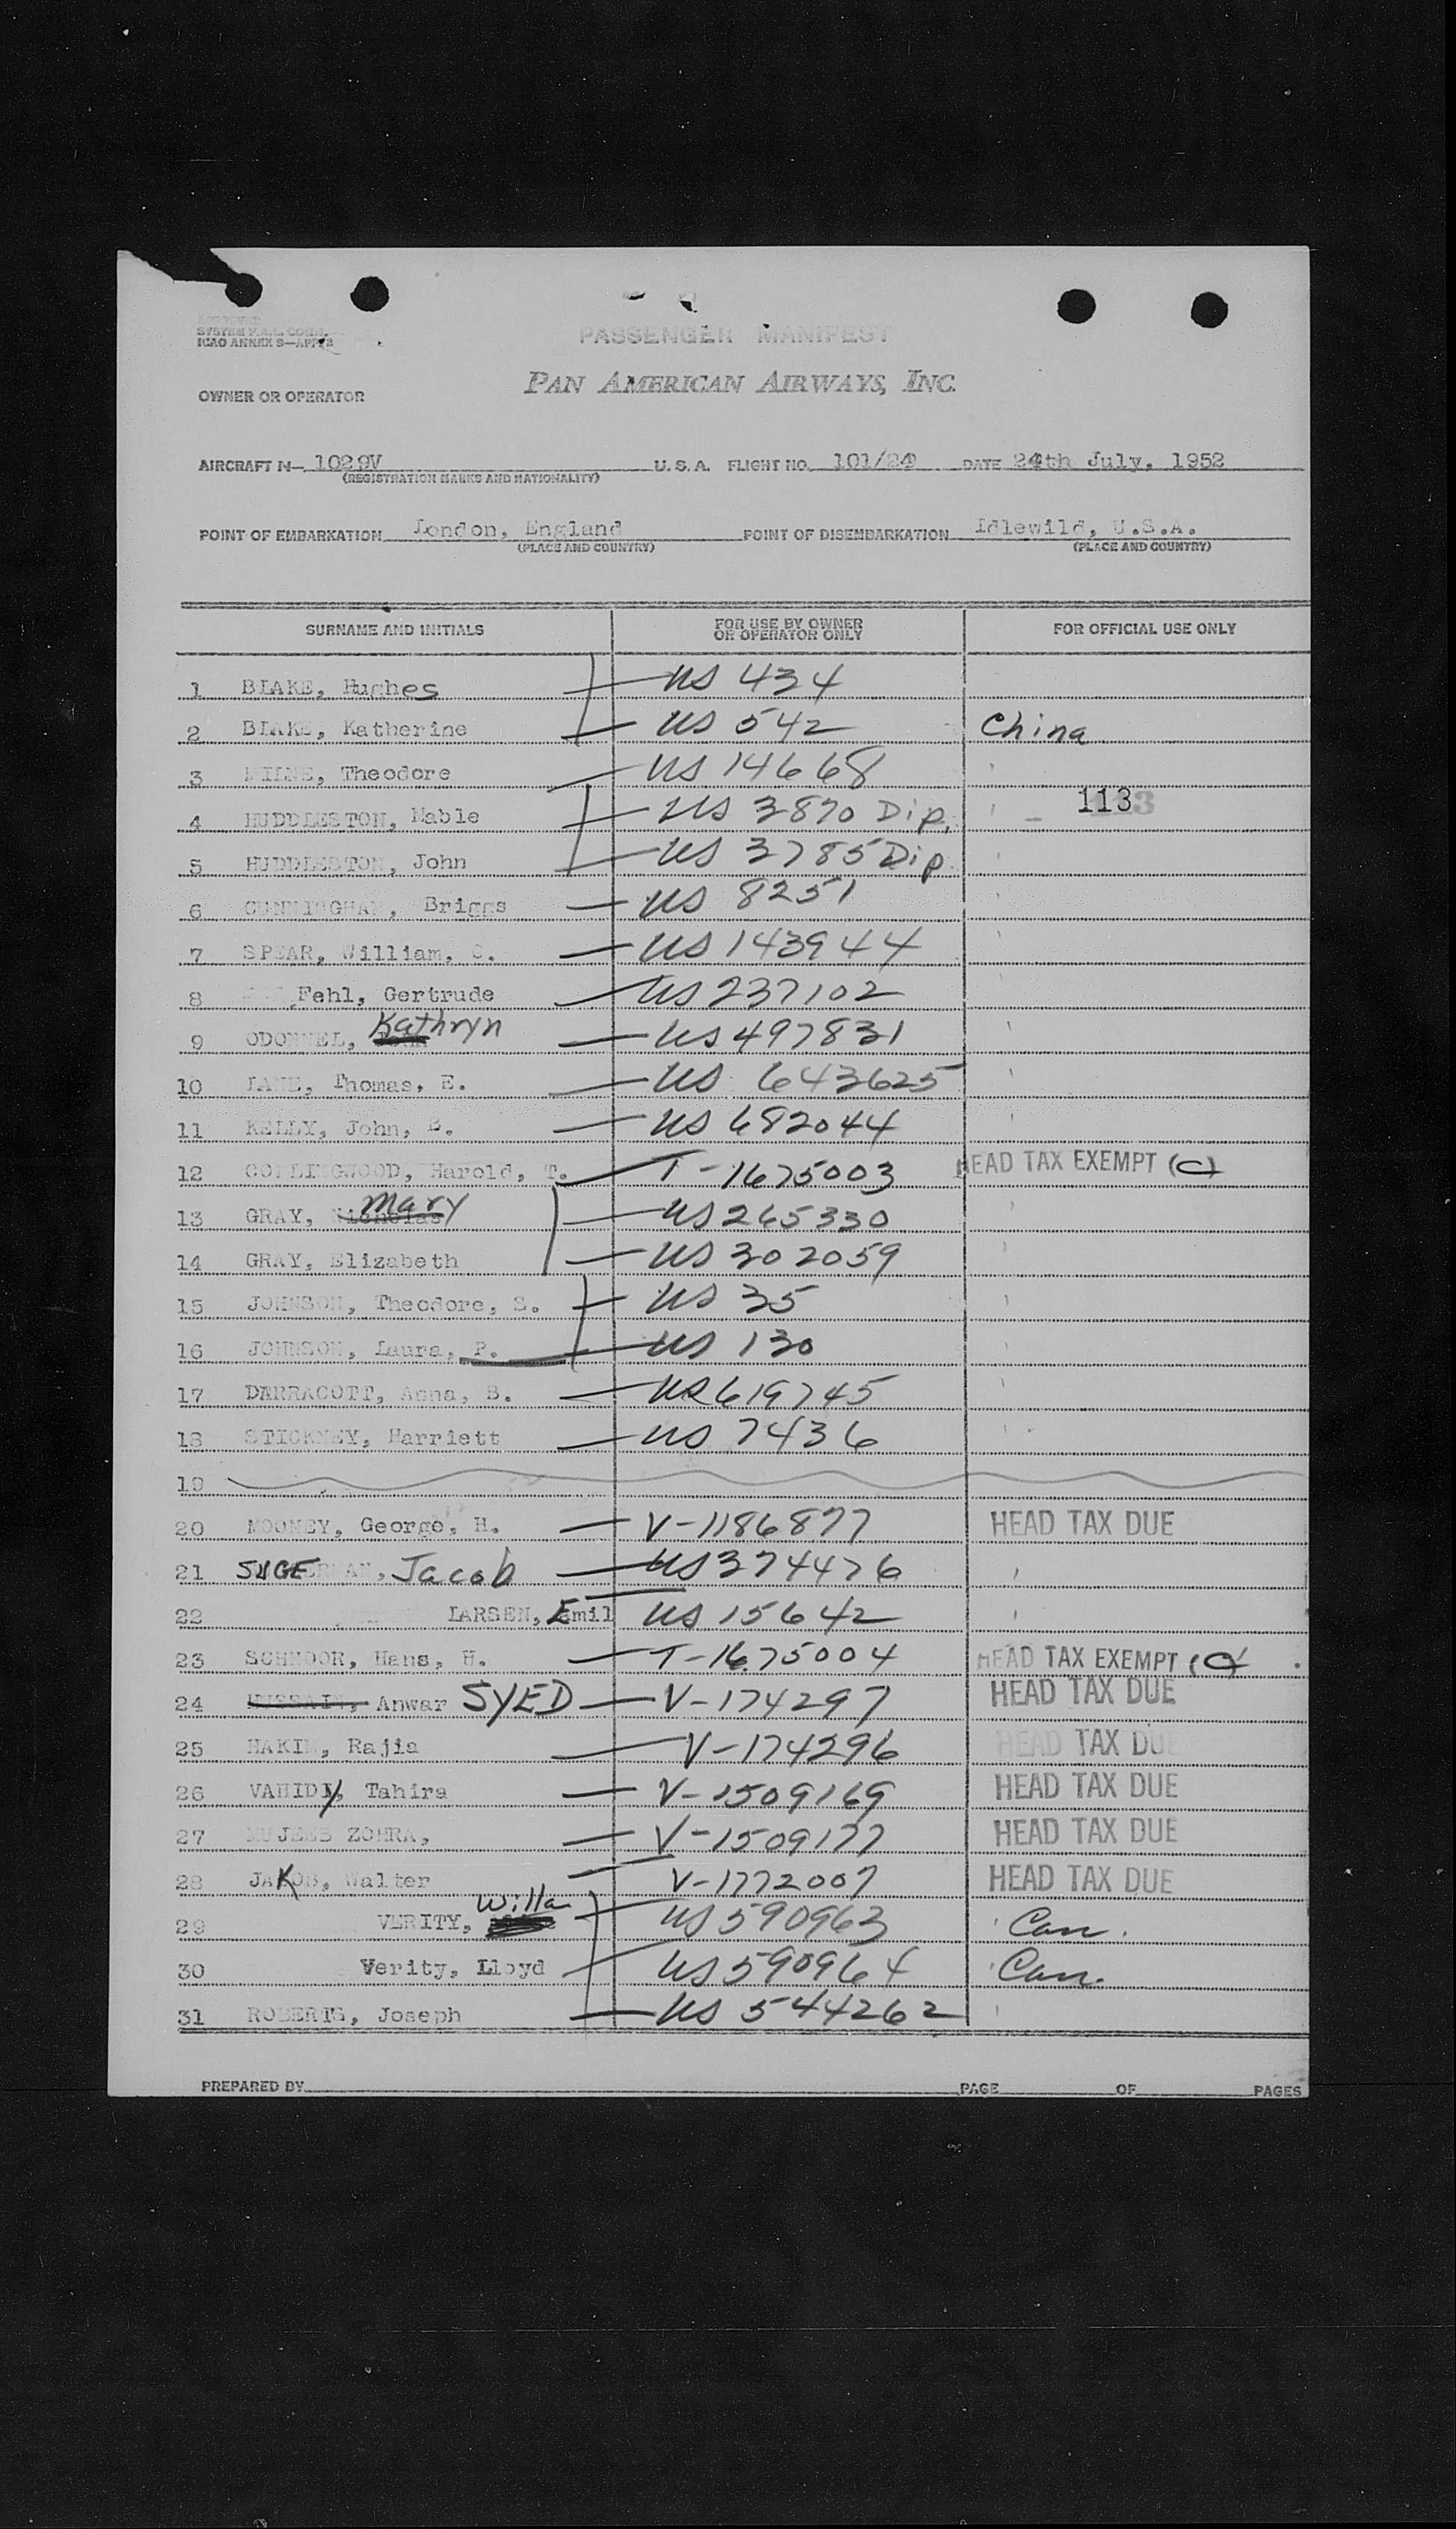 SYSTEM F.A.L. COMM.
ICAO ANNEX 9—APP. 3
PASSENGER MANIFEST
OWNER OR OPERATOR PAN AMERICAN AIRWAYS, INC.
AIRCRAFT N— 1029V U. S. A. FLIGHT NO. 101/24 DATE 24th July, 1952
(REGISTRATION MARKS AND NATIONALITY)
POINT OF EMBARKATION London, England POINT OF DISEMBARKATION Idlewild, U.S.A.
(PLACE AND COUNTRY) (PLACE AND COUNTRY)
SURNAME AND INITIALS FOR USE BY OWNER OR OPERATOR ONLY FOR OFFICIAL USE ONLY
1 BLAKE, Hughes US 434
2 BLAKE, Katherine US 542 China
3 MILNE, Theodore US 14668
4 HUDDLESTON, Mable US 3870 Dip. 113
5 HUDDLESTON, John US 3785 Dip
6 CUNNINGHAM, Briggs US 8251
7 SPEAR, William, US 143944
8 Fehl, Gertrude US 237102
9 ODONNEL, Kathryn US 497831
10 LANE, Thomas, E. US 643625
11 KELLY, John, B. US 682044
12 COLLINGWOOD, Harold, T. T-1675003 HEAD TAX EXEMPT (C)
13 GRAY, Nicholas Mary US 265330
14 GRAY, Elizabeth US 302059
15 JOHNSON, Theodore, S. US 35
16 JOHNSON, Laura, P. US 130
17 DARRACOTT, Anna, B. US 619745
18 STICKNEY, Harriett US 7436
19
20 MOONEY, George, H. V-1186877 HEAD TAX DUE
21 SUGERMAN, Jacob US 374476
22 LARSEN, Emil US 15642
23 SCHNOOR, Hans, H. T-1675004 HEAD TAX EXEMPT (C)
24 HUSSAIN, Anwar SYED V-174297 HEAD TAX DUE
25 HAKIM, Rajia V-174296 HEAD TAX DUE
26 VAHIDY, Tahira V-1509169 HEAD TAX DUE
27 MUJEEB ZOHRA, V-1509177 HEAD TAX DUE
28 JAKOB, Walter V-1772007 HEAD TAX DUE
29 VERITY, Willa US 590963 Can.
30 Verity, Lloyd US 590964 Can.
31 ROBERTS, Joseph US 544262
PREPARED BY PAGE OF PAGES